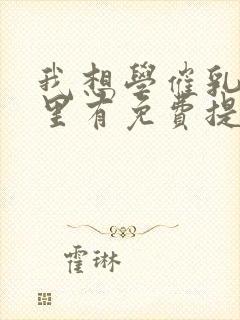 我想學催乳
里有免費提
霍琳